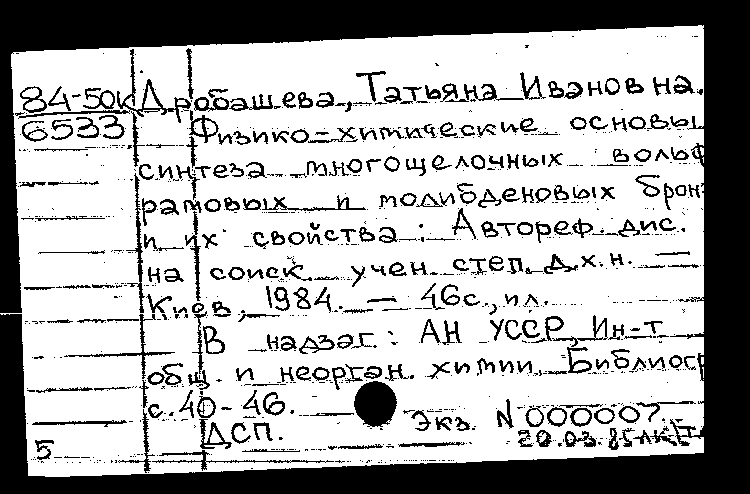 84-50К Дробашева, Татьяна Ивановна.
6533 Физико-химические основы
синтеза многощелочных вольф
рамовых и молибденовых брон
и их свойства: Автореф. дис.
на соиск. учен. степ. д.х.н. —
Киев, 1984. — 46с., ил.
В надзаг.: АН УССР, Ин-т
общ. и неорган. химии. Библиогр
с. 40-46.
Экз. N 000007.
ДСП.
20.03.85
5